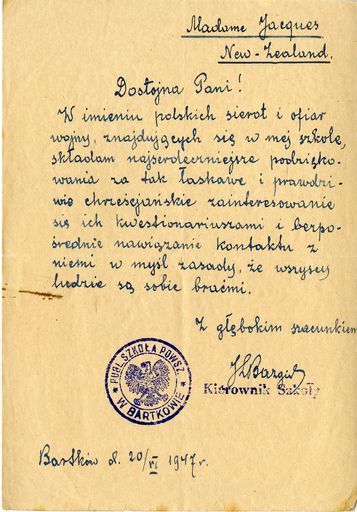 Madame Jacques
New-Zealand.
Dostojna Pani!
W imieniu polskich sierot i ofiar
wojny, znajdujących się w mej szkole,
składam najserdeczniejsze podzięko-
wania za tak łaskawe i prawdzi-
wie chrześcjańskie zainteresowanie
się ich kwestionariuszami i bezpo-
średnie nawiązanie kontaktu z
niemi w myśl zasady, że wszyscy
ludzie są sobie braćmi.
Z głębokim szacunkiem
PUBL. SZKOŁA POWSZ.
W BARTKOWIE
Kierownik Szkoły
Bartków d. 20/VI 1947 r.